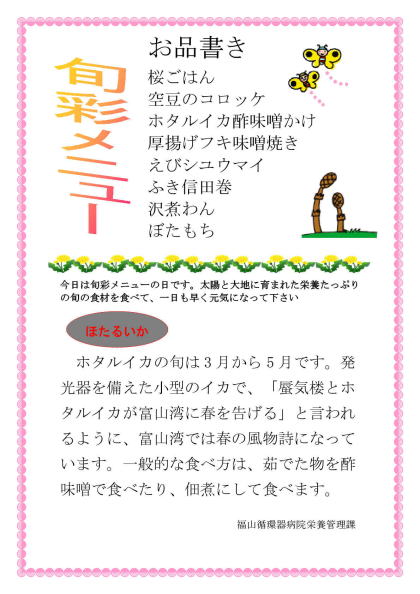 旬彩メニュー
お品書き
桜ごはん
空豆のコロッケ
ホタルイカ酢味噌かけ
厚揚げフキ味噌焼き
えびシユウマイ
ふき信田巻
沢煮わん
ぼたもち
今日は旬彩メニューの日です。太陽と大地に育まれた栄養たっぷり
の旬の食材を食べて、一日も早く元気になって下さい
ほたるいか
ホタルイカの旬は３月から５月です。発
光器を備えた小型のイカで、「蜃気楼とホ
タルイカが富山湾に春を告げる」と言われ
るように、富山湾では春の風物詩になって
います。一般的な食べ方は、茹でた物を酢
味噌で食べたり、佃煮にして食べます。
福山循環器病院栄養管理課